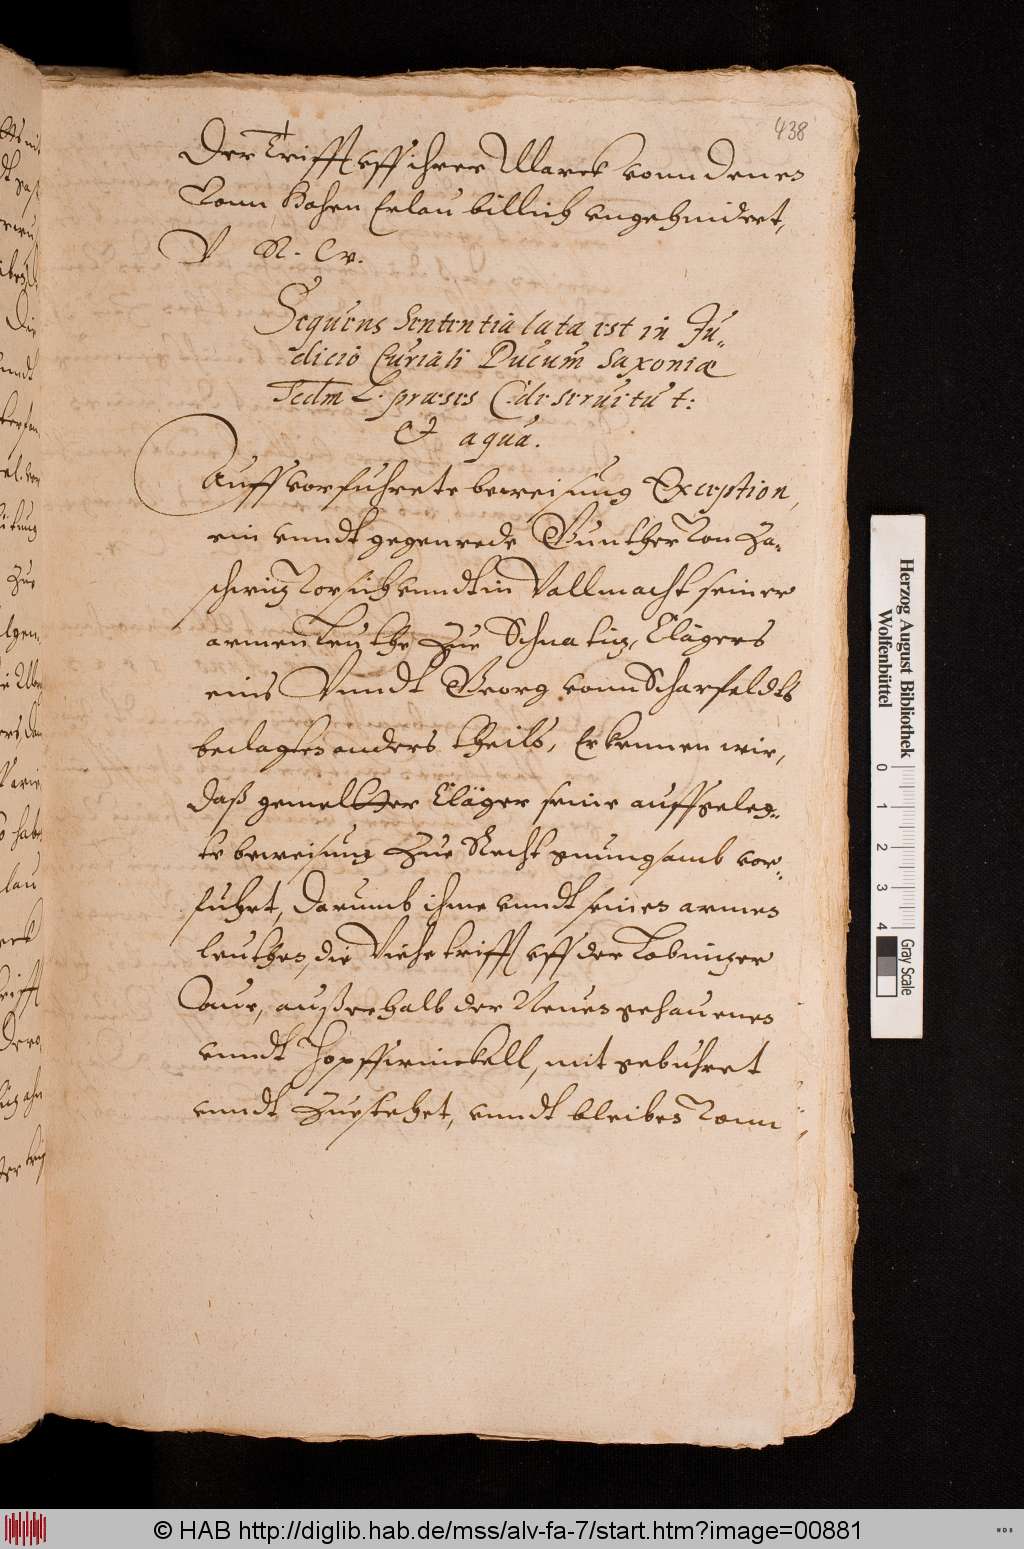 438
Der Trifft uff ihrer Marck vonn denen
Vonn Hohen Erlau billich ungehindert,
V R. W.
Sequens sententia lata est in Ju„
dicio Curiali Ducum Saxoniæ
secdm L. præses C. de servitut:
& aqua.
Auff vorfuhrete beweisung Exception,
ein unndt gegenrede Gunther Von Za„
schwitz Vor sich unndt in Vollmacht seiner
armen Leuthe Zue Schnatitz, Clägers
eins Unndt Georg vonn Scharfeldts
beclagten anders theils, Erkennen wir,
daß gemelter Cläger seine auffgeleg„
te beweisung Zue Recht gnungsamb vor„
fuhret, Darumb ihme unndt seinen armen
leuthen, die Viehe trifft uff der Lobnitzer
Aue, außerhalb der Neuen gehauenen
unndt Hopffwinckell, mit gebuhret
unndt Zustehet, unndt bleiben Vonn
Herzog August Bibliothek
Wolfenbüttel
0 1 2 3 4
Gray Scale
© HAB http://diglib.hab.de/mss/alv-fa-7/start.htm?image=00881